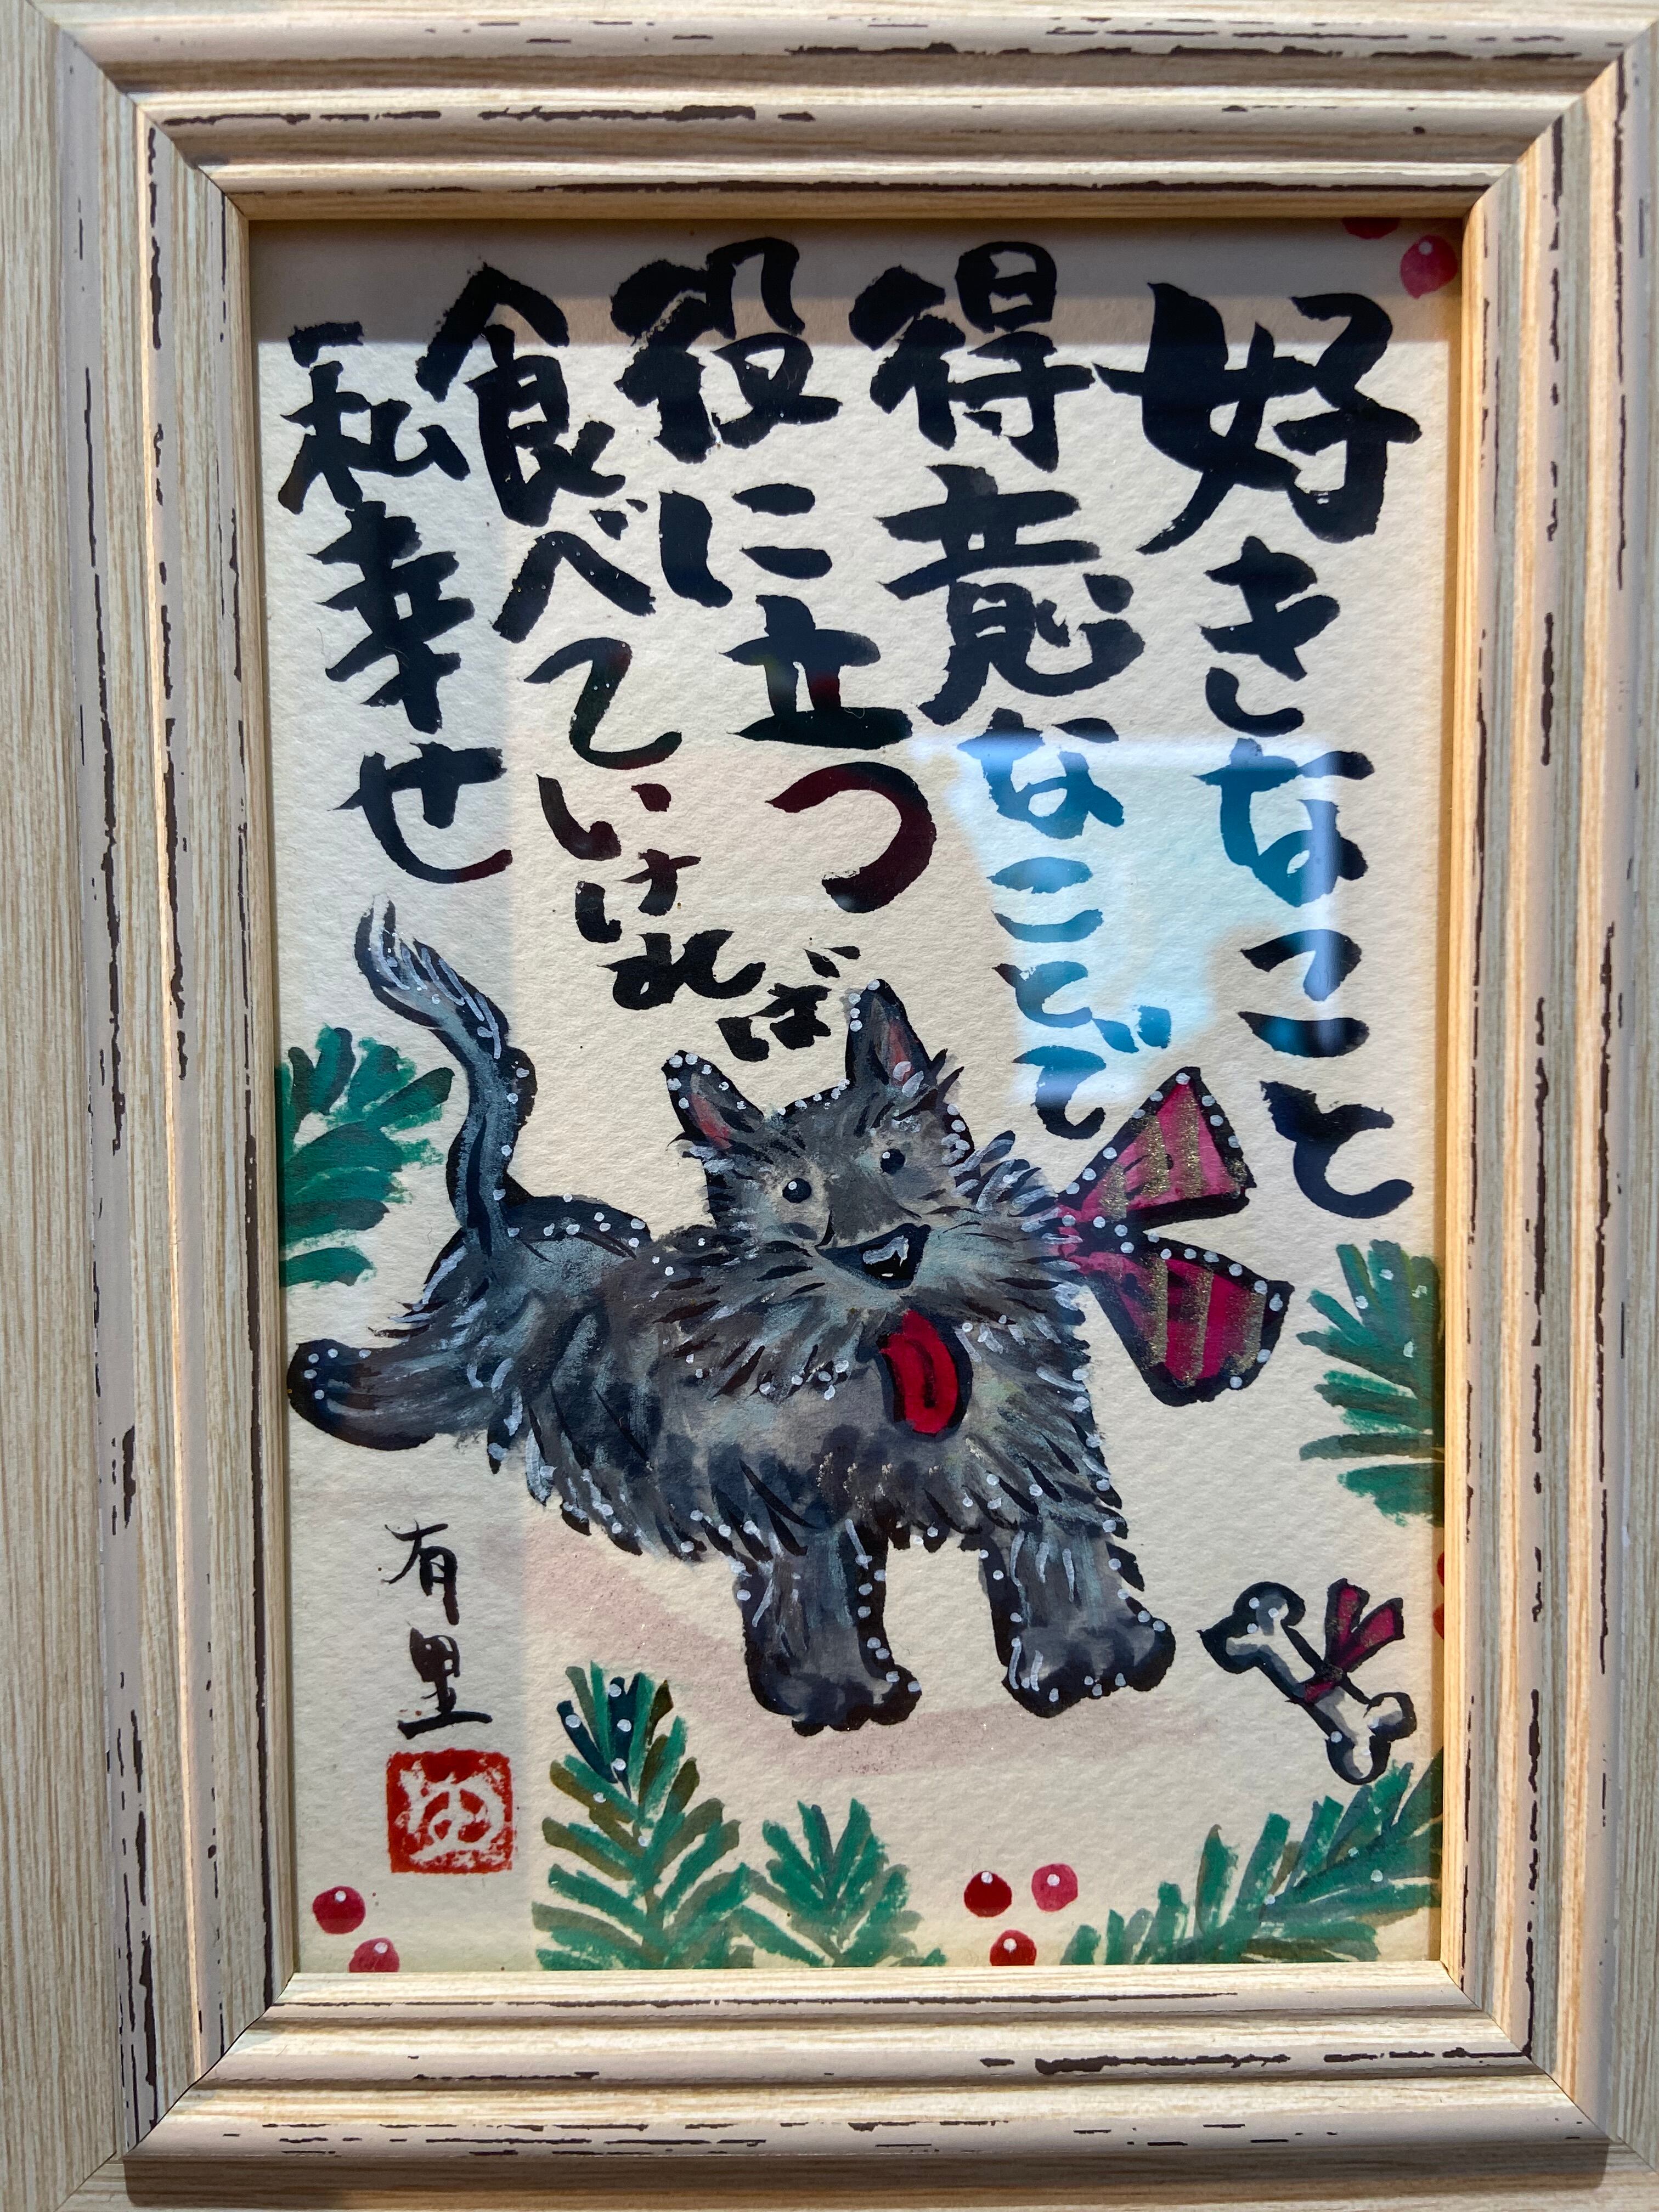 好きなこと
得意なことで
役に立つ
食べていければ
私幸せ
有里